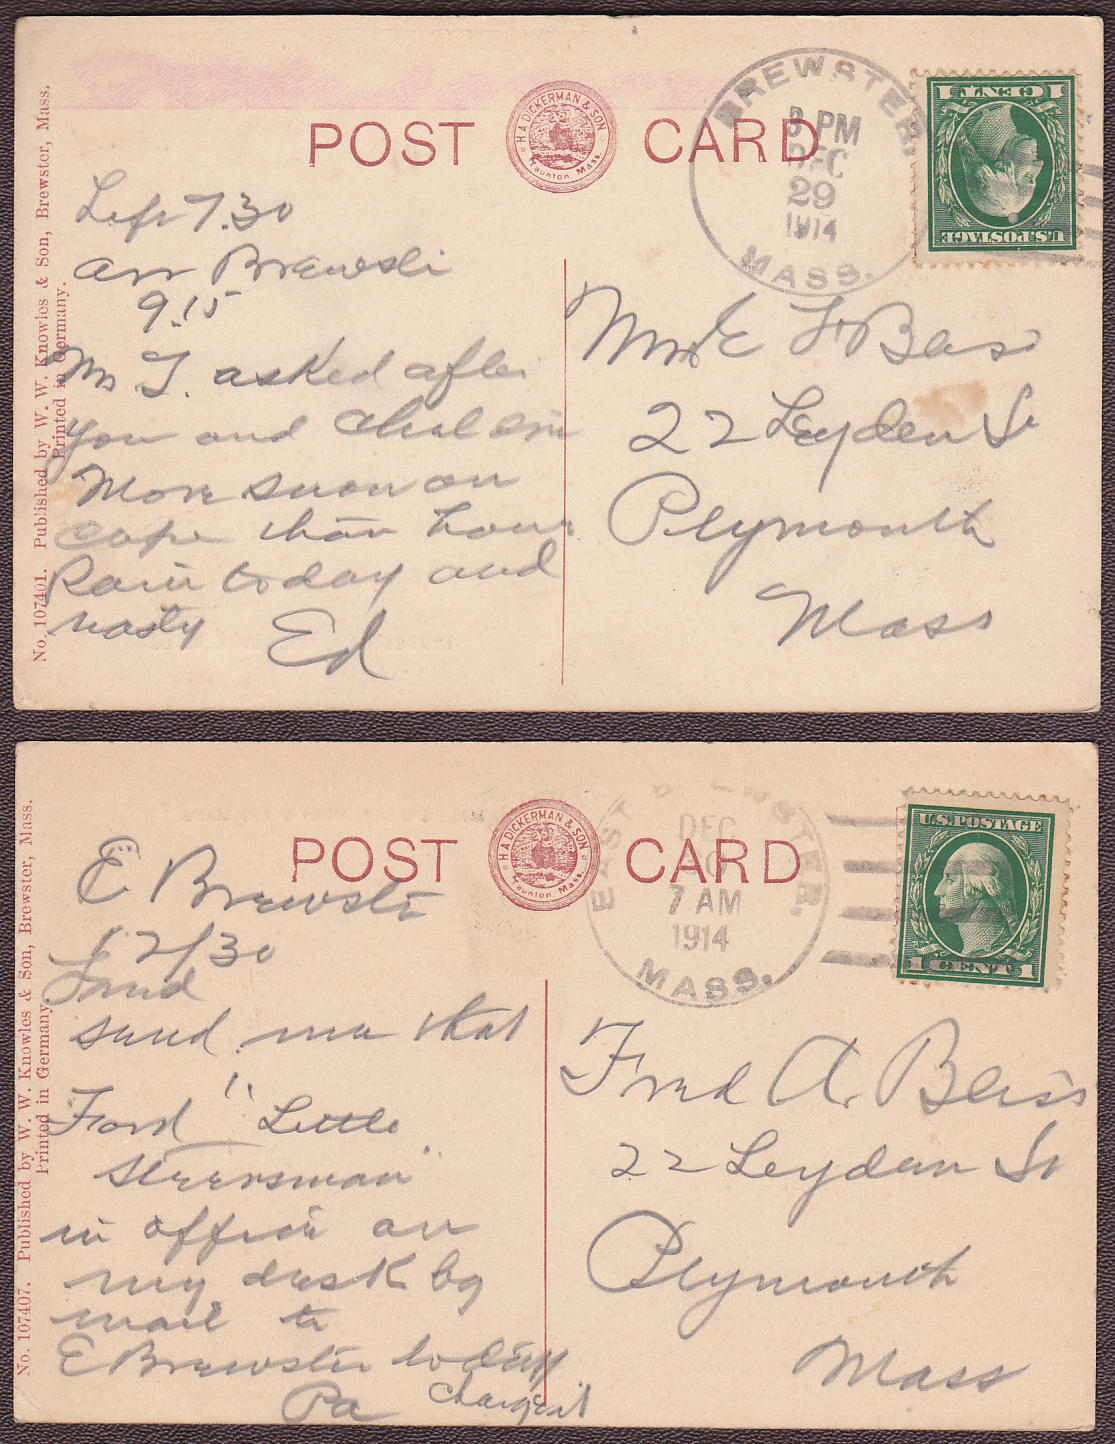 POST CARD
H A DICKERMAN & SON
Taunton, Mass.
BREWSTER,
PM
DEC
29
1914
MASS.
U.S.POSTAGE
1 CENT 1
No. 107401. Published by W. W. Knowles & Son, Brewster, Mass.
Printed in Germany.
Left 7.30
arr Brewster
9.15
Mr T. asked after
you and
More snow on
cape than home
Rain today and
nasty
Ed
Mrs E F Bliss
22 Leyden St
Plymouth
Mass
POST CARD
H A DICKERMAN & SON
Taunton, Mass.
EAST BREWSTER.
DEC
30
7 AM
1914
MASS.
U.S.POSTAGE
1 CENT 1
No. 107407. Published by W. W. Knowles & Son, Brewster, Mass.
Printed in Germany.
E Brewster
12/30
Fred
send me that
Ford "Little
steersman"
in office on
my desk by
mail to
E Brewster today
Pa charge it
Fred A. Bliss
22 Leyden St
Plymouth
Mass